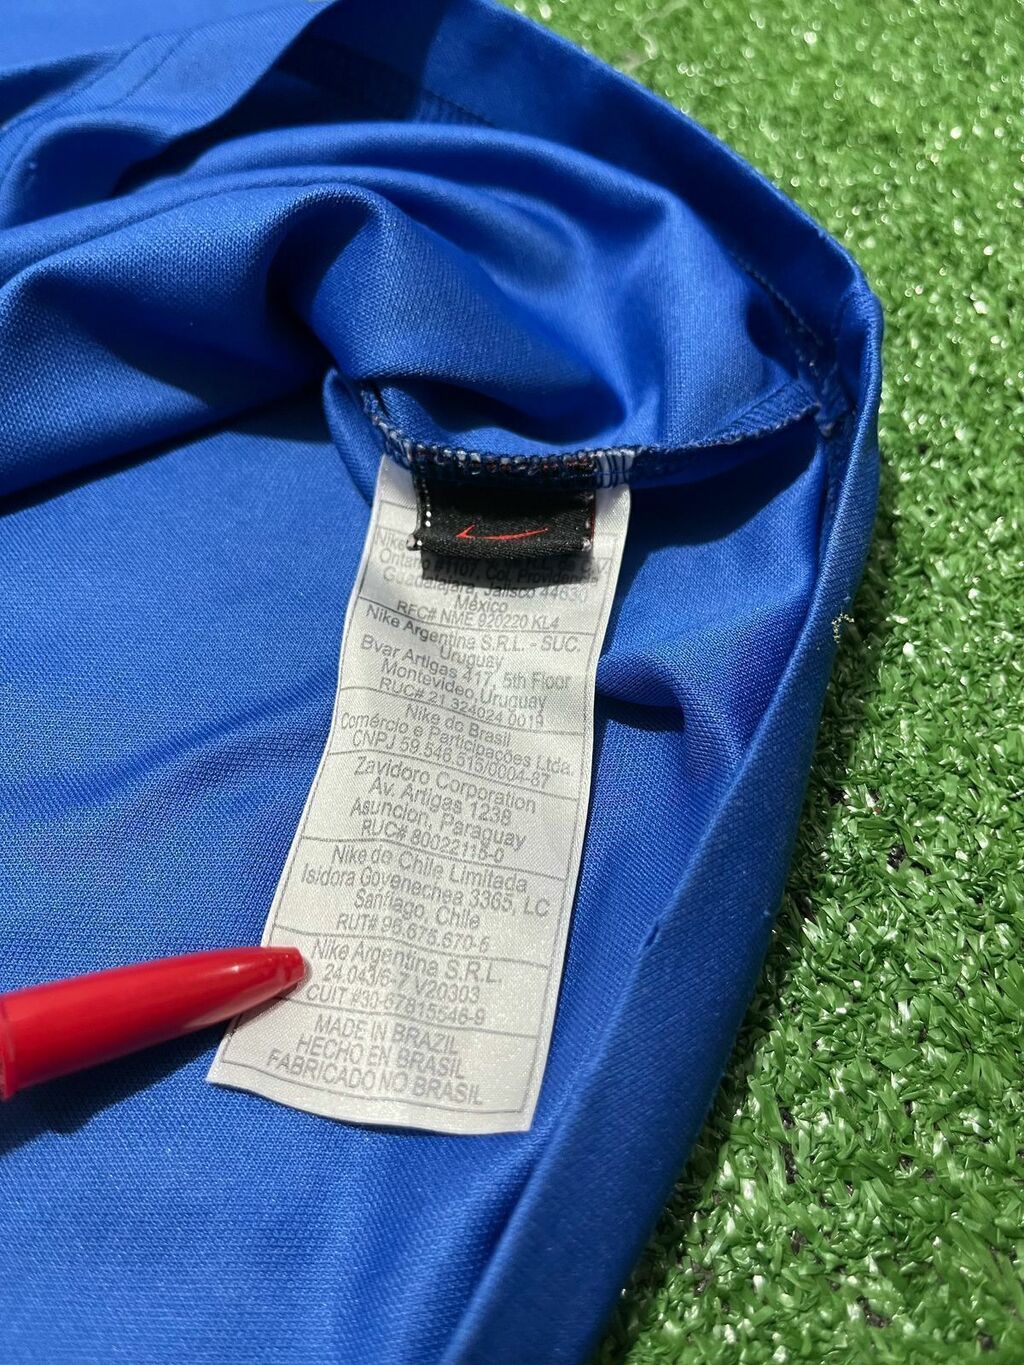 Nike
Ontario #1107, Col. Providencia
Guadalajara, Jalisco 44630
México
RFC# NME 920220 KL4
Nike Argentina S.R.L. - SUC.
Uruguay
Bvar Artigas 417, 5th Floor
Montevideo, Uruguay
RUC# 21 324024 0019
Nike do Brasil
Comércio e Participações Ltda.
CNPJ 59.546.515/0004-87
Zavidoro Corporation
Av. Artigas 1238
Asuncion, Paraguay
RUC# 80022115-0
Nike de Chile Limitada
Isidora Goyenechea 3365, LC
Santiago, Chile
RUT# 96.675.670-5
Nike Argentina S.R.L.
24.043/6-7 V20303
CUIT #30-67815646-9
MADE IN BRAZIL
HECHO EN BRASIL
FABRICADO NO BRASIL